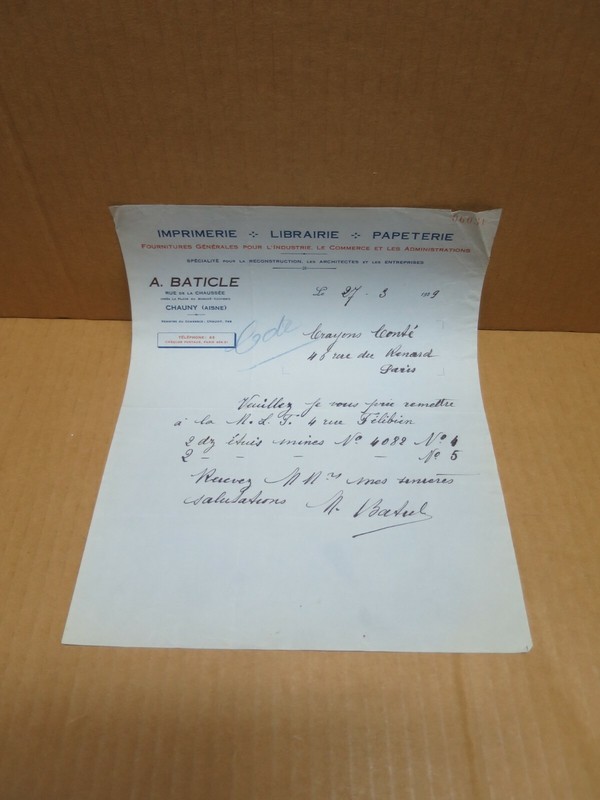 IMPRIMERIE LIBRAIRIE PAPETERIE
FOURNITURES GÉNÉRALES POUR L'INDUSTRIE, LE COMMERCE ET LES ADMINISTRATIONS
SPÉCIALITÉ POUR LA RECONSTRUCTION, LES ARCHITECTES ET LES ENTREPRISES
A. BATICLE
RUE DE LA CHAUSSÉE
CHAUNY (AISNE)
REGISTRE DU COMMERCE, CHAUNY
TÉLÉPHONE:
CHÈQUES POSTAUX, PARIS
Le 27-3
Crayons Conté
46 rue du Renard
Paris
Veuillez je vous prie remettre
à la 4 rue Félibien
2 dz étuis mines No 4082 No 4
2 - - - - No 5
Recevez MMrs mes sincères
salutations